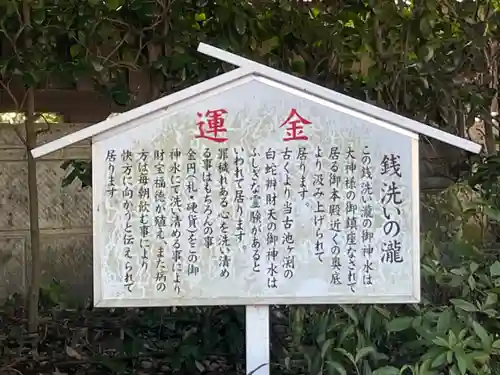 金運
銭洗いの瀧
この銭洗い瀧の御神水は
大神様の御鎮座なされて
居る御本殿近くの奥底
より汲み上げられて
居ります。
古くより当古池ヶ渕の
白蛇辨財天の御神水は
ふしぎな霊験があると
いわれて居ります。
罪穢れある心を洗い清め
る事はもちろんの事
金円札や硬貨をこの御
神水にて洗い清める事により
財宝福徳が殖え、また病の
方は毎朝飲む事により
快方に向かうと伝えられて
居ります